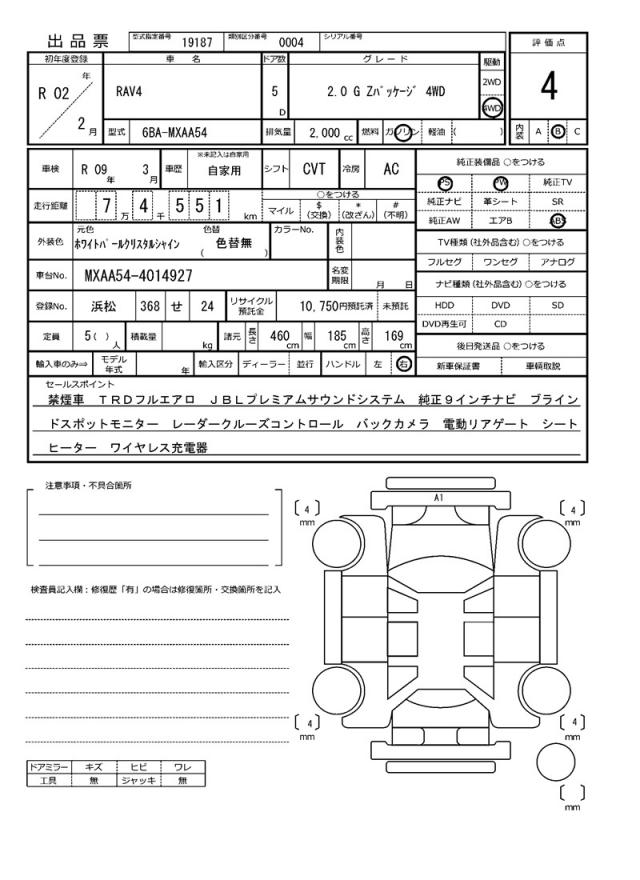 出品票 型式指定番号 19187 類別区分番号 0004 シリアル番号
評価点
4
初年度登録 車名 ドア数 グレード 駆動
R 02 年 2 月
RAV4 5 D 2.0 G Zパッケージ 4WD
2WD
4WD
型式 6BA-MXAA54 排気量 2,000 cc 燃料 ガソリン 軽油 ( )
内装 A B C
車検 R 09 年 3 月 車歴 ※未記入は自家用 自家用 シフト CVT 冷房 AC
純正装備品 ○をつける
PS PW 純正TV
純正ナビ 革シート SR
純正AW エアB ABS
走行距離 7 万 4 千 551 km
○をつける
マイル $(交換) *(改ざん) #(不明)
外装色 元色 ホワイトパールクリスタルシャイン 色替 ( 色替無 ) カラーNo. 内装色
TV種類(社外品含む)○をつける
フルセグ ワンセグ アナログ
車台No. MXAA54-4014927 名変期限 月 日
ナビ種類(社外品含む)○をつける
HDD DVD SD
DVD再生可 CD
登録No. 浜松 368 せ 24 リサイクル預託金 10,750円預託済 未預託
定員 5( ) 人 積載量 kg 諸元 長さ 460 cm 幅 185 cm 高さ 169 cm
後日発送品 ○をつける
新車保証書 車輌取説
輸入車のみ⇒ モデル年式 年 輸入区分 ディーラー 並行 ハンドル 左 右
セールスポイント
禁煙車 TRDフルエアロ JBLプレミアムサウンドシステム 純正9インチナビ ブライン
ドスポットモニター レーダークルーズコントロール バックカメラ 電動リアゲート シート
ヒーター ワイヤレス充電器
注意事項・不具合箇所
検査員記入欄:修復歴「有」の場合は修復箇所・交換箇所を記入
A1
[ 4 ] mm
[ 4 ] mm
[ 4 ] mm
[ 4 ] mm
[ ] mm
ドアミラー キズ ヒビ ワレ
工具 無 ジャッキ 無